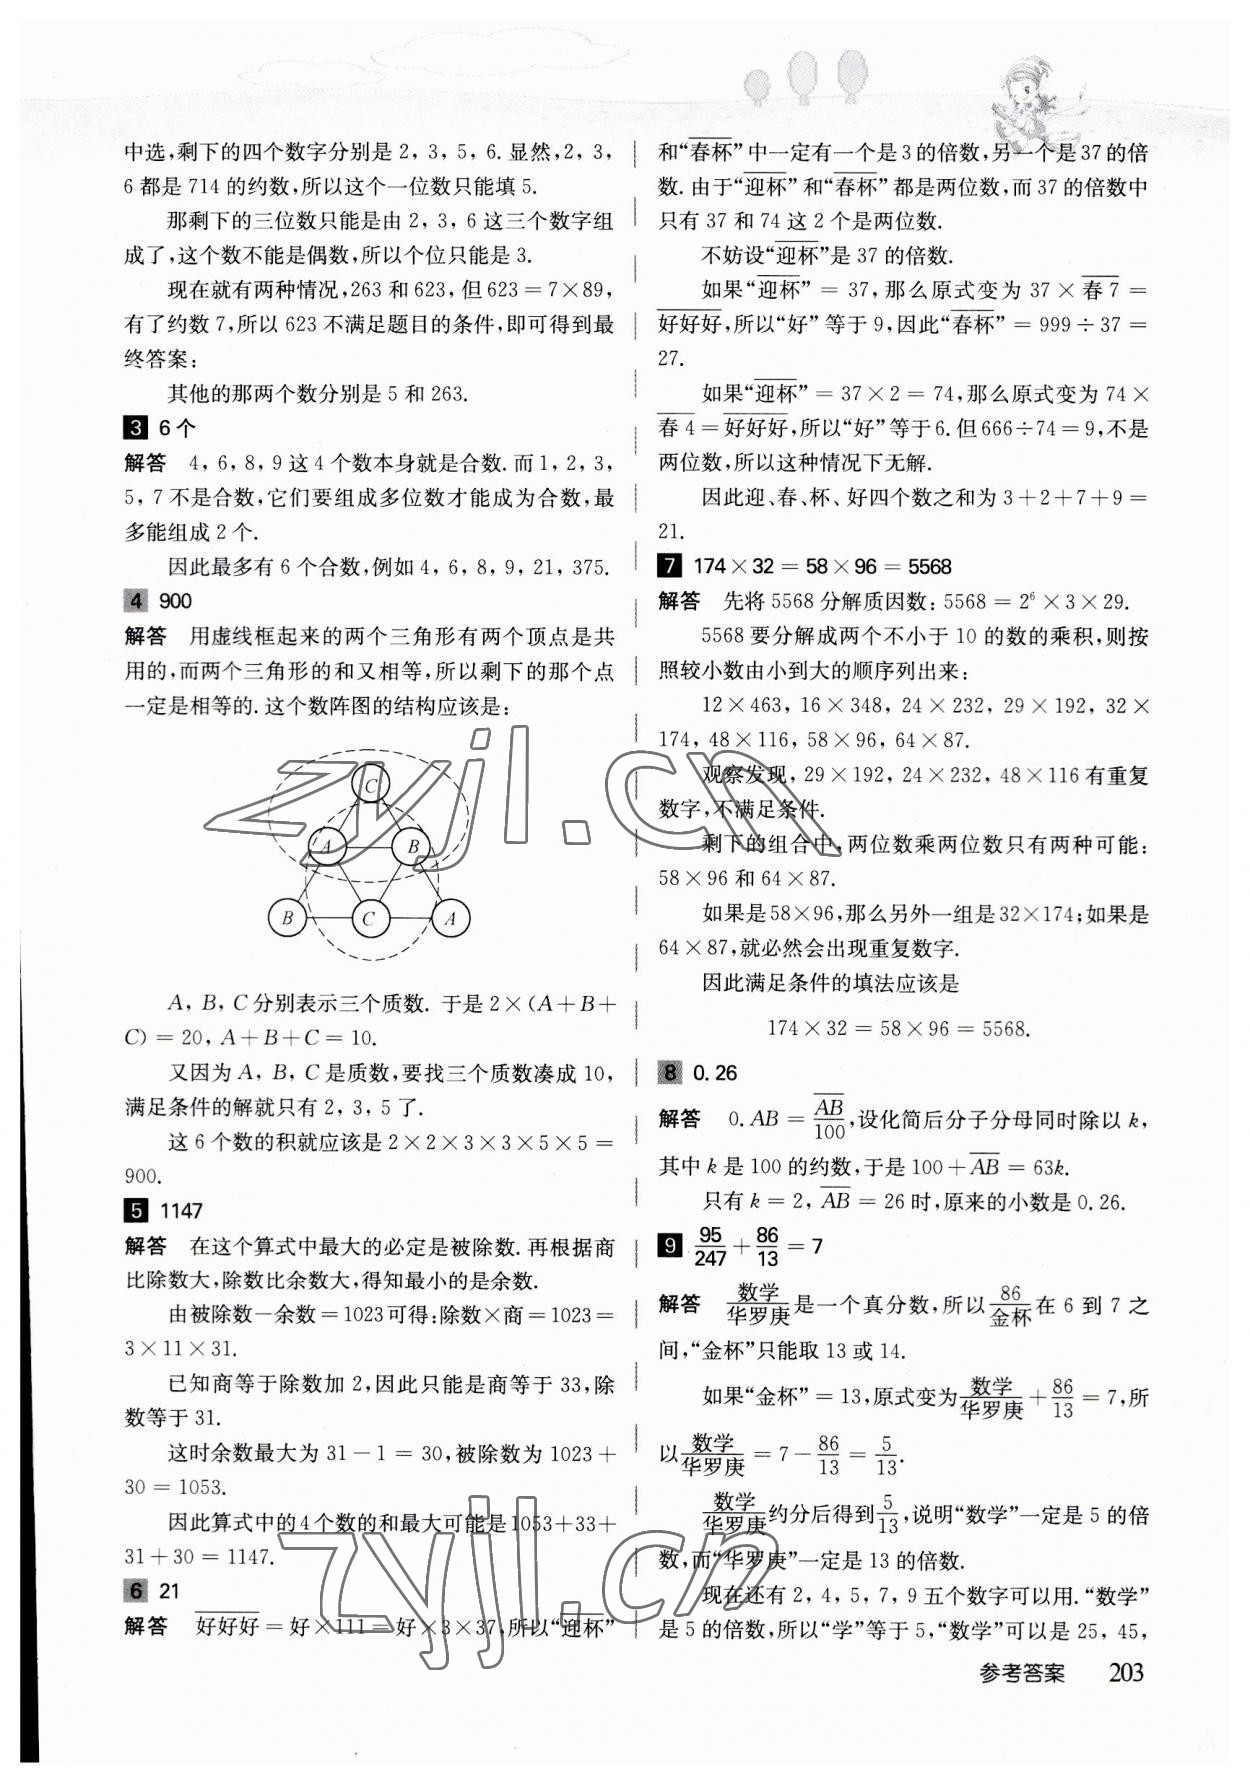 中选,剩下的四个数字分别是 2, 3, 5, 6. 显然,2, 3,
6 都是 714 的约数,所以这个一位数只能填 5.
那剩下的三位数只能是由 2, 3, 6 这三个数字组
成了,这个数不能是偶数,所以个位只能是 3.
现在就有两种情况,263 和 623, 但 623 = 7×89,
有了约数 7,所以 623 不满足题目的条件,即可得到最
终答案:
其他的那两个数分别是 5 和 263.
3 6 个
解答 4, 6, 8, 9 这 4 个数本身就是合数. 而 1, 2, 3,
5, 7 不是合数,它们要组成多位数才能成为合数,最
多能组成 2 个.
因此最多有 6 个合数,例如 4, 6, 8, 9, 21, 375.
4 900
解答 用虚线框起来的两个三角形有两个顶点是共
用的,而两个三角形的和又相等,所以剩下的那个点
一定是相等的. 这个数阵图的结构应该是:
C
A B
B C A
A, B, C 分别表示三个质数. 于是 2×(A+B+
C) = 20, A+B+C = 10.
又因为 A, B, C 是质数,要找三个质数凑成 10,
满足条件的解就只有 2, 3, 5 了.
这 6 个数的积就应该是 2×2×3×3×5×5 =
900.
5 1147
解答 在这个算式中最大的必定是被除数. 再根据商
比除数大,除数比余数大,得知最小的是余数.
由被除数−余数 = 1023 可得:除数×商 = 1023 =
3×11×31.
已知商等于除数加 2,因此只能是商等于 33,除
数等于 31.
这时余数最大为 31−1 = 30,被除数为 1023+
30 = 1053.
因此算式中的 4 个数的和最大可能是 1053+33+
31+30 = 1147.
6 21
解答 好好好 = 好×111 = 好×3×37,所以“迎杯”
和“春杯”中一定有一个是 3 的倍数,另一个是 37 的倍
数. 由于“迎杯”和“春杯”都是两位数,而 37 的倍数中
只有 37 和 74 这 2 个是两位数.
不妨设“迎杯”是 37 的倍数.
如果“迎杯” = 37,那么原式变为 37×春7 =
好好好,所以“好”等于 9,因此“春杯” = 999÷37 =
27.
如果“迎杯” = 37×2 = 74,那么原式变为 74×
春4 = 好好好,所以“好”等于 6. 但 666÷74 = 9,不是
两位数,所以这种情况下无解.
因此迎、春、杯、好四个数之和为 3+2+7+9 =
21.
7 174×32 = 58×96 = 5568
解答 先将 5568 分解质因数: 5568 = 2⁶×3×29.
5568 要分解成两个不小于 10 的数的乘积,则按
照较小数由小到大的顺序列出来:
12×463, 16×348, 24×232, 29×192, 32×
174, 48×116, 58×96, 64×87.
观察发现, 29×192, 24×232, 48×116 有重复
数字,不满足条件.
剩下的组合中,两位数乘两位数只有两种可能:
58×96 和 64×87.
如果是 58×96,那么另外一组是 32×174;如果是
64×87,就必然会出现重复数字.
因此满足条件的填法应该是
174×32 = 58×96 = 5568.
8 0.26
解答 0.AB = AB/100,设化简后分子分母同时除以 k,
其中 k 是 100 的约数,于是 100+AB = 63k.
只有 k = 2, AB = 26 时,原来的小数是 0.26.
9 95/247 + 86/13 = 7
解答 数学/华罗庚 是一个真分数,所以 86/金杯 在 6 到 7 之
间,“金杯”只能取 13 或 14.
如果“金杯” = 13,原式变为 数学/华罗庚 + 86/13 = 7,所
以 数学/华罗庚 = 7 − 86/13 = 5/13.
数学/华罗庚 约分后得到 5/13,说明“数学”一定是 5 的倍
数,而“华罗庚”一定是 13 的倍数.
现在还有 2, 4, 5, 7, 9 五个数字可以用. “数学”
是 5 的倍数,所以“学”等于 5,“数学”可以是 25, 45,
参考答案 203
zyjl.cn
zyjl.cn